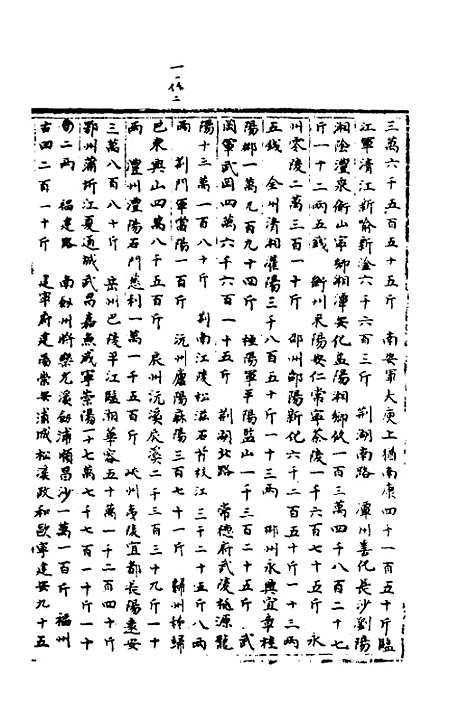 一一作二
三萬六千五百五十五斤　南安軍大庾上猶南康四十一百五十斤臨
江軍清江新喻新淦六千六百三斤　荆湖南路　潭州善化長沙劉陽
湘陰澧泉衡山寧鄉湘潭安化益陽湘鄉攸一百三萬四千八百二十七
斤一十二兩五錢　衡州耒陽安仁常寧茶陵一千六百七十五斤　永
州零陵二萬三百一十斤　邵州邵陽新化六千二百五十斤一十三兩
五錢　全州清湘灌陽三千八百五十斤一十三兩　郴州永興宜章桂
陽郴一萬九百九十四斤　桂陽軍平陽藍山一千三百二十五斤　武
岡軍武岡四萬六千六百一十五斤　荆湖北路　常德府武陵桃源龍
陽十三萬一百八十斤　荆南江陵松滋石首枝江三千二十五斤八兩
兩　荆門軍當陽一百斤　沅州盧陽麻陽三百七十一斤　歸州秭歸
巴東興山四萬八千五百斤　辰州沅溪辰溪二千三百三十九斤一十
兩　澧州澧陽石門慈利一萬一千五百斤　峽州夷陵宜都長陽遠安
三萬八百八十斤　岳州巴陵平江臨湘華容五十萬一千二百四十斤
鄂州蒲圻江夏通城武昌嘉魚咸寧崇陽一十七萬七千七百一十斤一十
兩　福建路　南劍州將樂尤溪劍浦順昌沙一萬一百斤　福州
古田二百一十斤　建寧府建陽崇安浦城松溪政和歐寧建安九十五